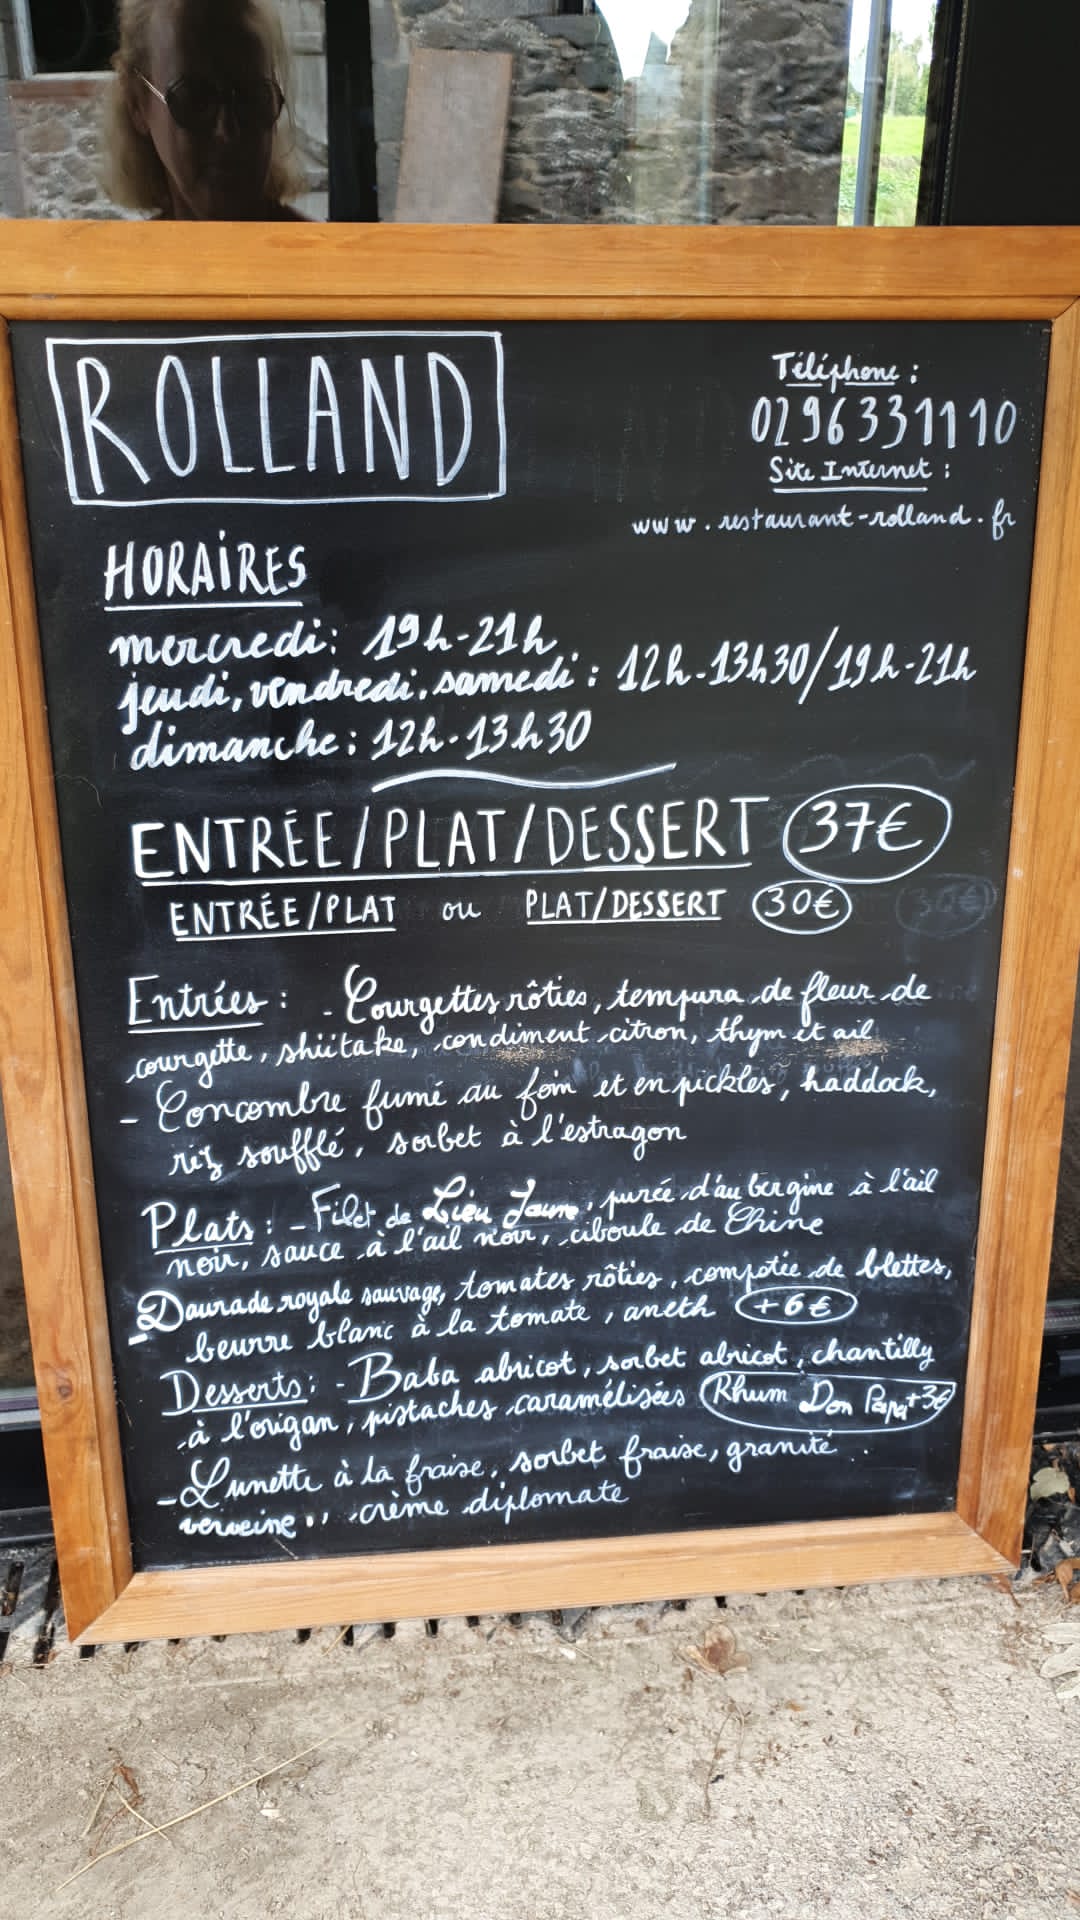 ROLLAND
Téléphone :
0296331110
Site Internet :
www.restaurant-rolland.fr
HORAIRES
mercredi : 19h-21h
jeudi, vendredi, samedi : 12h-13h30/19h-21h
dimanche : 12h-13h30
ENTRÉE/PLAT/DESSERT 37€
ENTRÉE/PLAT ou PLAT/DESSERT 30€ 30€
Entrées : - Courgettes rôties, tempura de fleur de
courgette, shiitake, condiment citron, thym et ail
- Concombre fumé au foin et en pickles, haddock,
riz soufflé, sorbet à l'estragon
Plats : - Filet de Lieu Jaune, purée d'aubergine à l'ail
noir, sauce à l'ail noir, ciboule de Chine
- Daurade royale sauvage, tomates rôties, compotée de blettes,
beurre blanc à la tomate, aneth +6€
Desserts : - Baba abricot, sorbet abricot, chantilly
à l'origan, pistaches caramélisées Rhum Don Papa +3€
- Lunette à la fraise, sorbet fraise, granité
verveine, crème diplomate